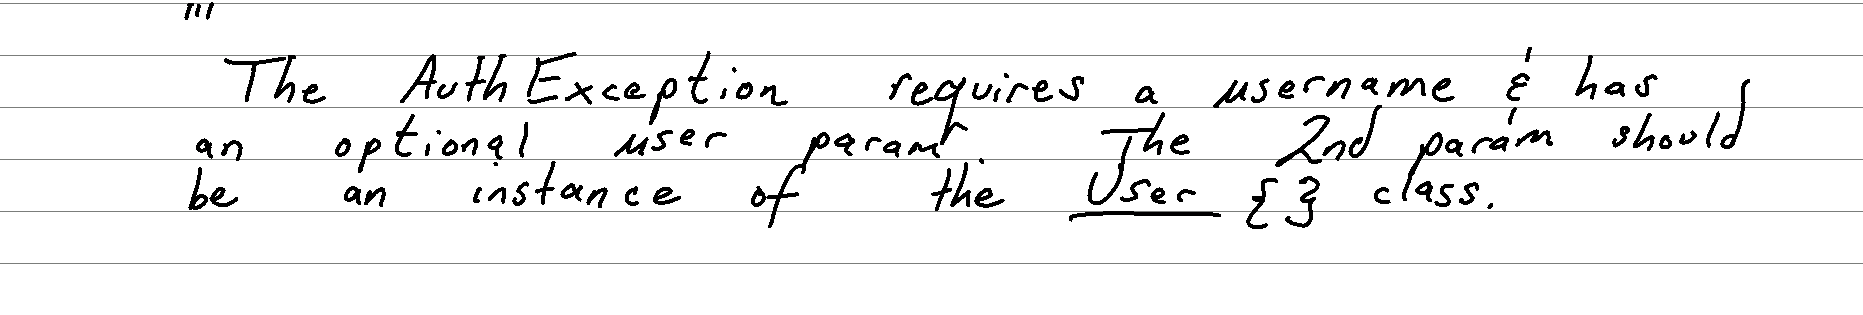 "'
The AuthException requires a username & has
an optional user param. The 2nd param should
be an instance of the User {} class.